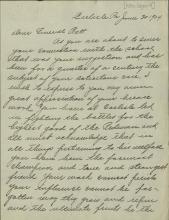 Carlisle, Pa. June 30/04
Dear General Pratt
As you are about to sever
your connection with the school
that was your suggestion and has
been for a quarter of a century the
subject of your solicitous care, I
wish to express to you my sincere
great appreciation of your heroic
work. You have at Carlisle led
in fighting the battles for the
highest good of the Indian and
all must acknowledge that in
all things pertaining to his welfare
you have been the foremost
champion, and true and strongest
friend. Very much cannot perish
Your influence cannot be for-
gotten
and the ultimate fruits to the